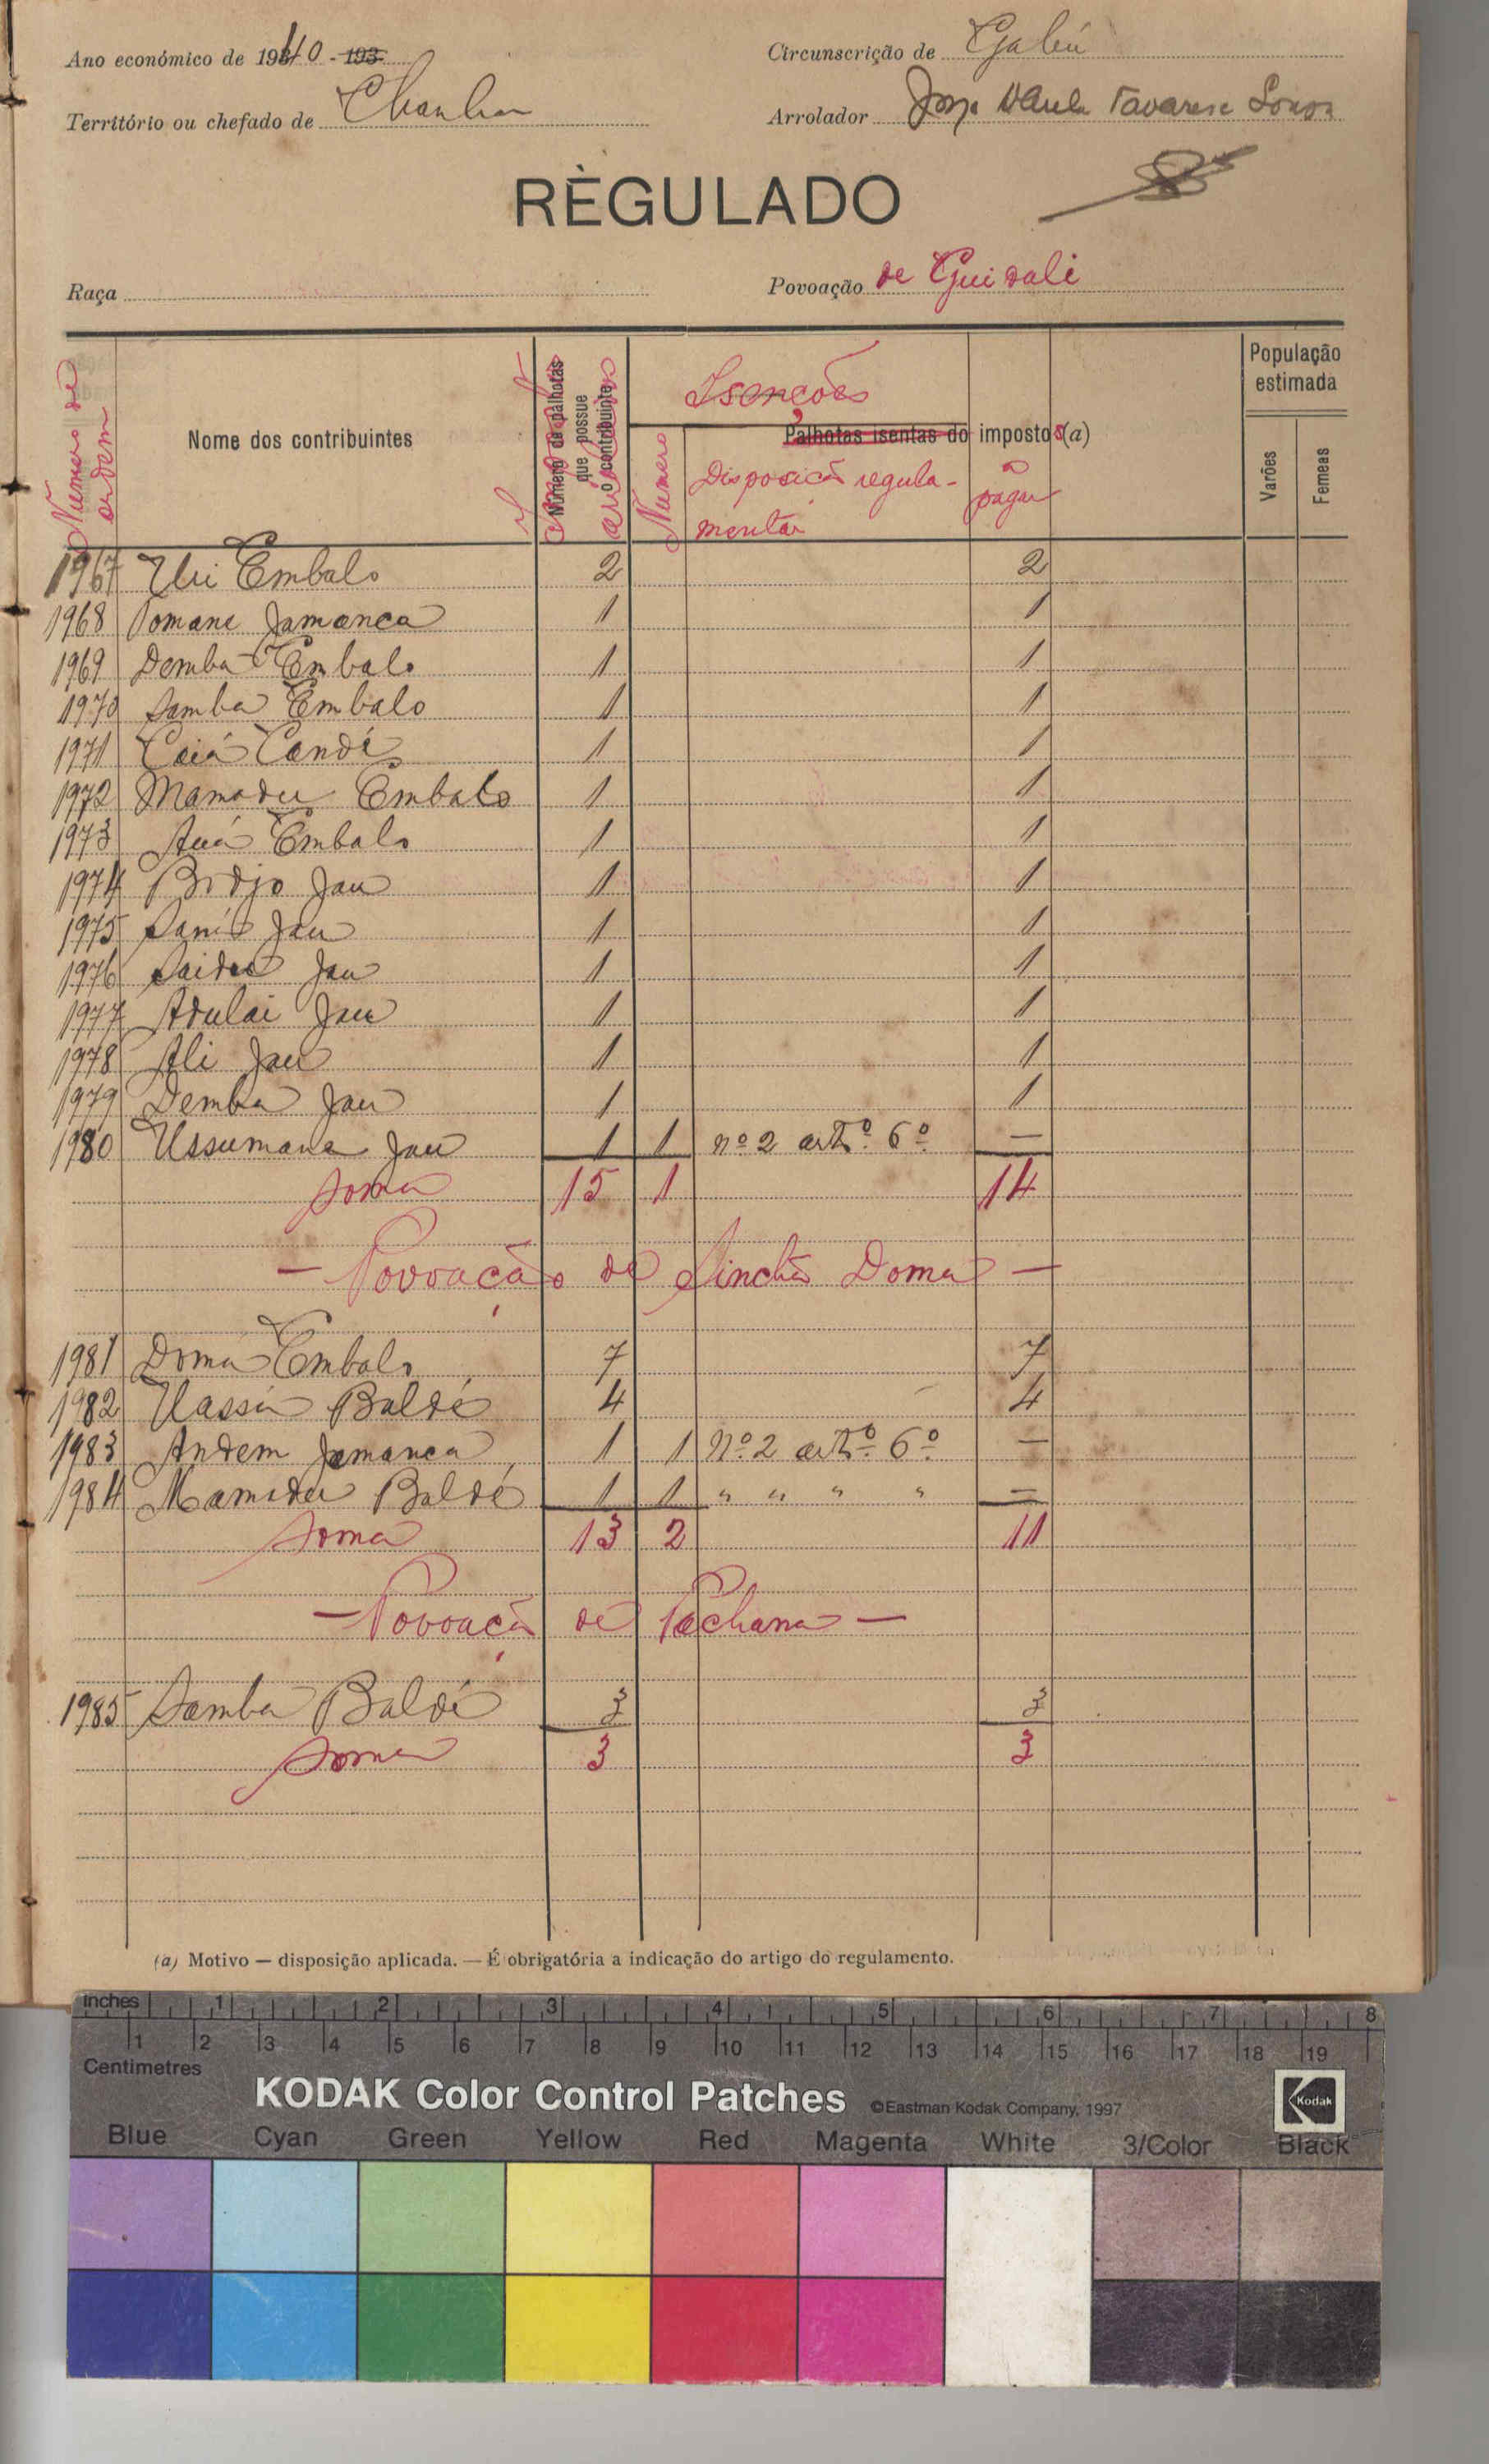 Ano económico de 1940 - 193
Circunscrição de Gabú
Território ou chefado de Chanha
Arrolador Tavares
RÈGULADO
Raça
Povoação de Guidali
Numero de ordem
Nome dos contribuintes
Número de palhotas que possue o contribuinte
Isenções
Palhotas isentas do impostos (a)
Numero
Disposição regula-
mentar
a pagar
População estimada
Varões
Femeas
1967 Uri Embalo 2 2
1968 Pomane Jamanca 1 1
1969 Demba Embalo 1 1
1970 Samba Embalo 1 1
1971 Caiá Candé 1 1
1972 Mamadu Embalo 1 1
1973 Auá Embalo 1 1
1974 Bodjo Jau 1 1
1975 Jau 1 1
1976 Saidu Jau 1 1
1977 Adulai Jau 1 1
1978 Ali Jau 1 1
1979 Demba Jau 1 1
1980 Ussumane Jau 1 1 nº 2 artº 6º —
Soma 15 1 14
— Povoação de Sinchã Doma —
1981 Domá Embalo 7 7
1982 Uassú Baldé 4 4
1983 Andem Jamanca 1 1 Nº 2 artº 6º —
1984 Mamadu Baldé 1 1 " " " " —
Soma 13 2 11
— Povoação de Pachana —
1985 Samba Baldé 3 3
Soma 3 3
(a) Motivo — disposição aplicada. — É obrigatória a indicação do artigo do regulamento.
inches 1 2 3 4 5 6 7 8
1 2 3 4 5 6 7 8 9 10 11 12 13 14 15 16 17 18 19
Centimetres
KODAK Color Control Patches ©Eastman Kodak Company, 1997
Kodak
Blue Cyan Green Yellow Red Magenta White 3/Color Black